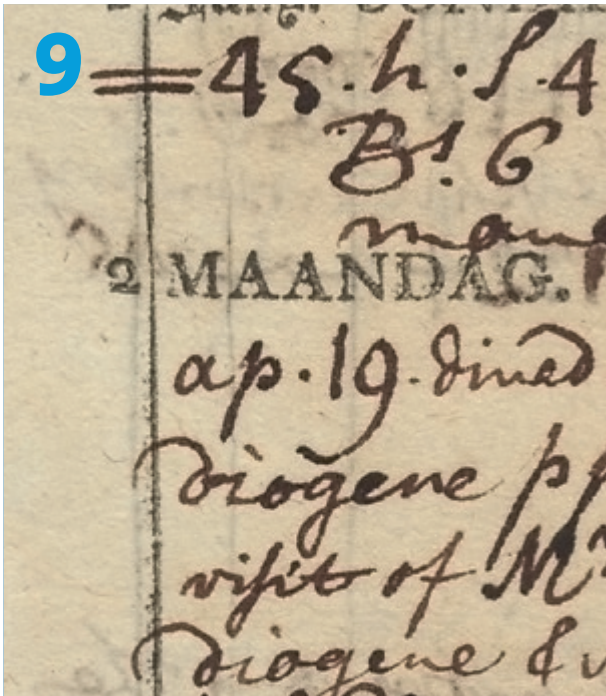 9
=45.h.S.4
Bs. 6
2 MAANDAG.
ap. 19. dined
diogene pp
visit of Mr
diogene &